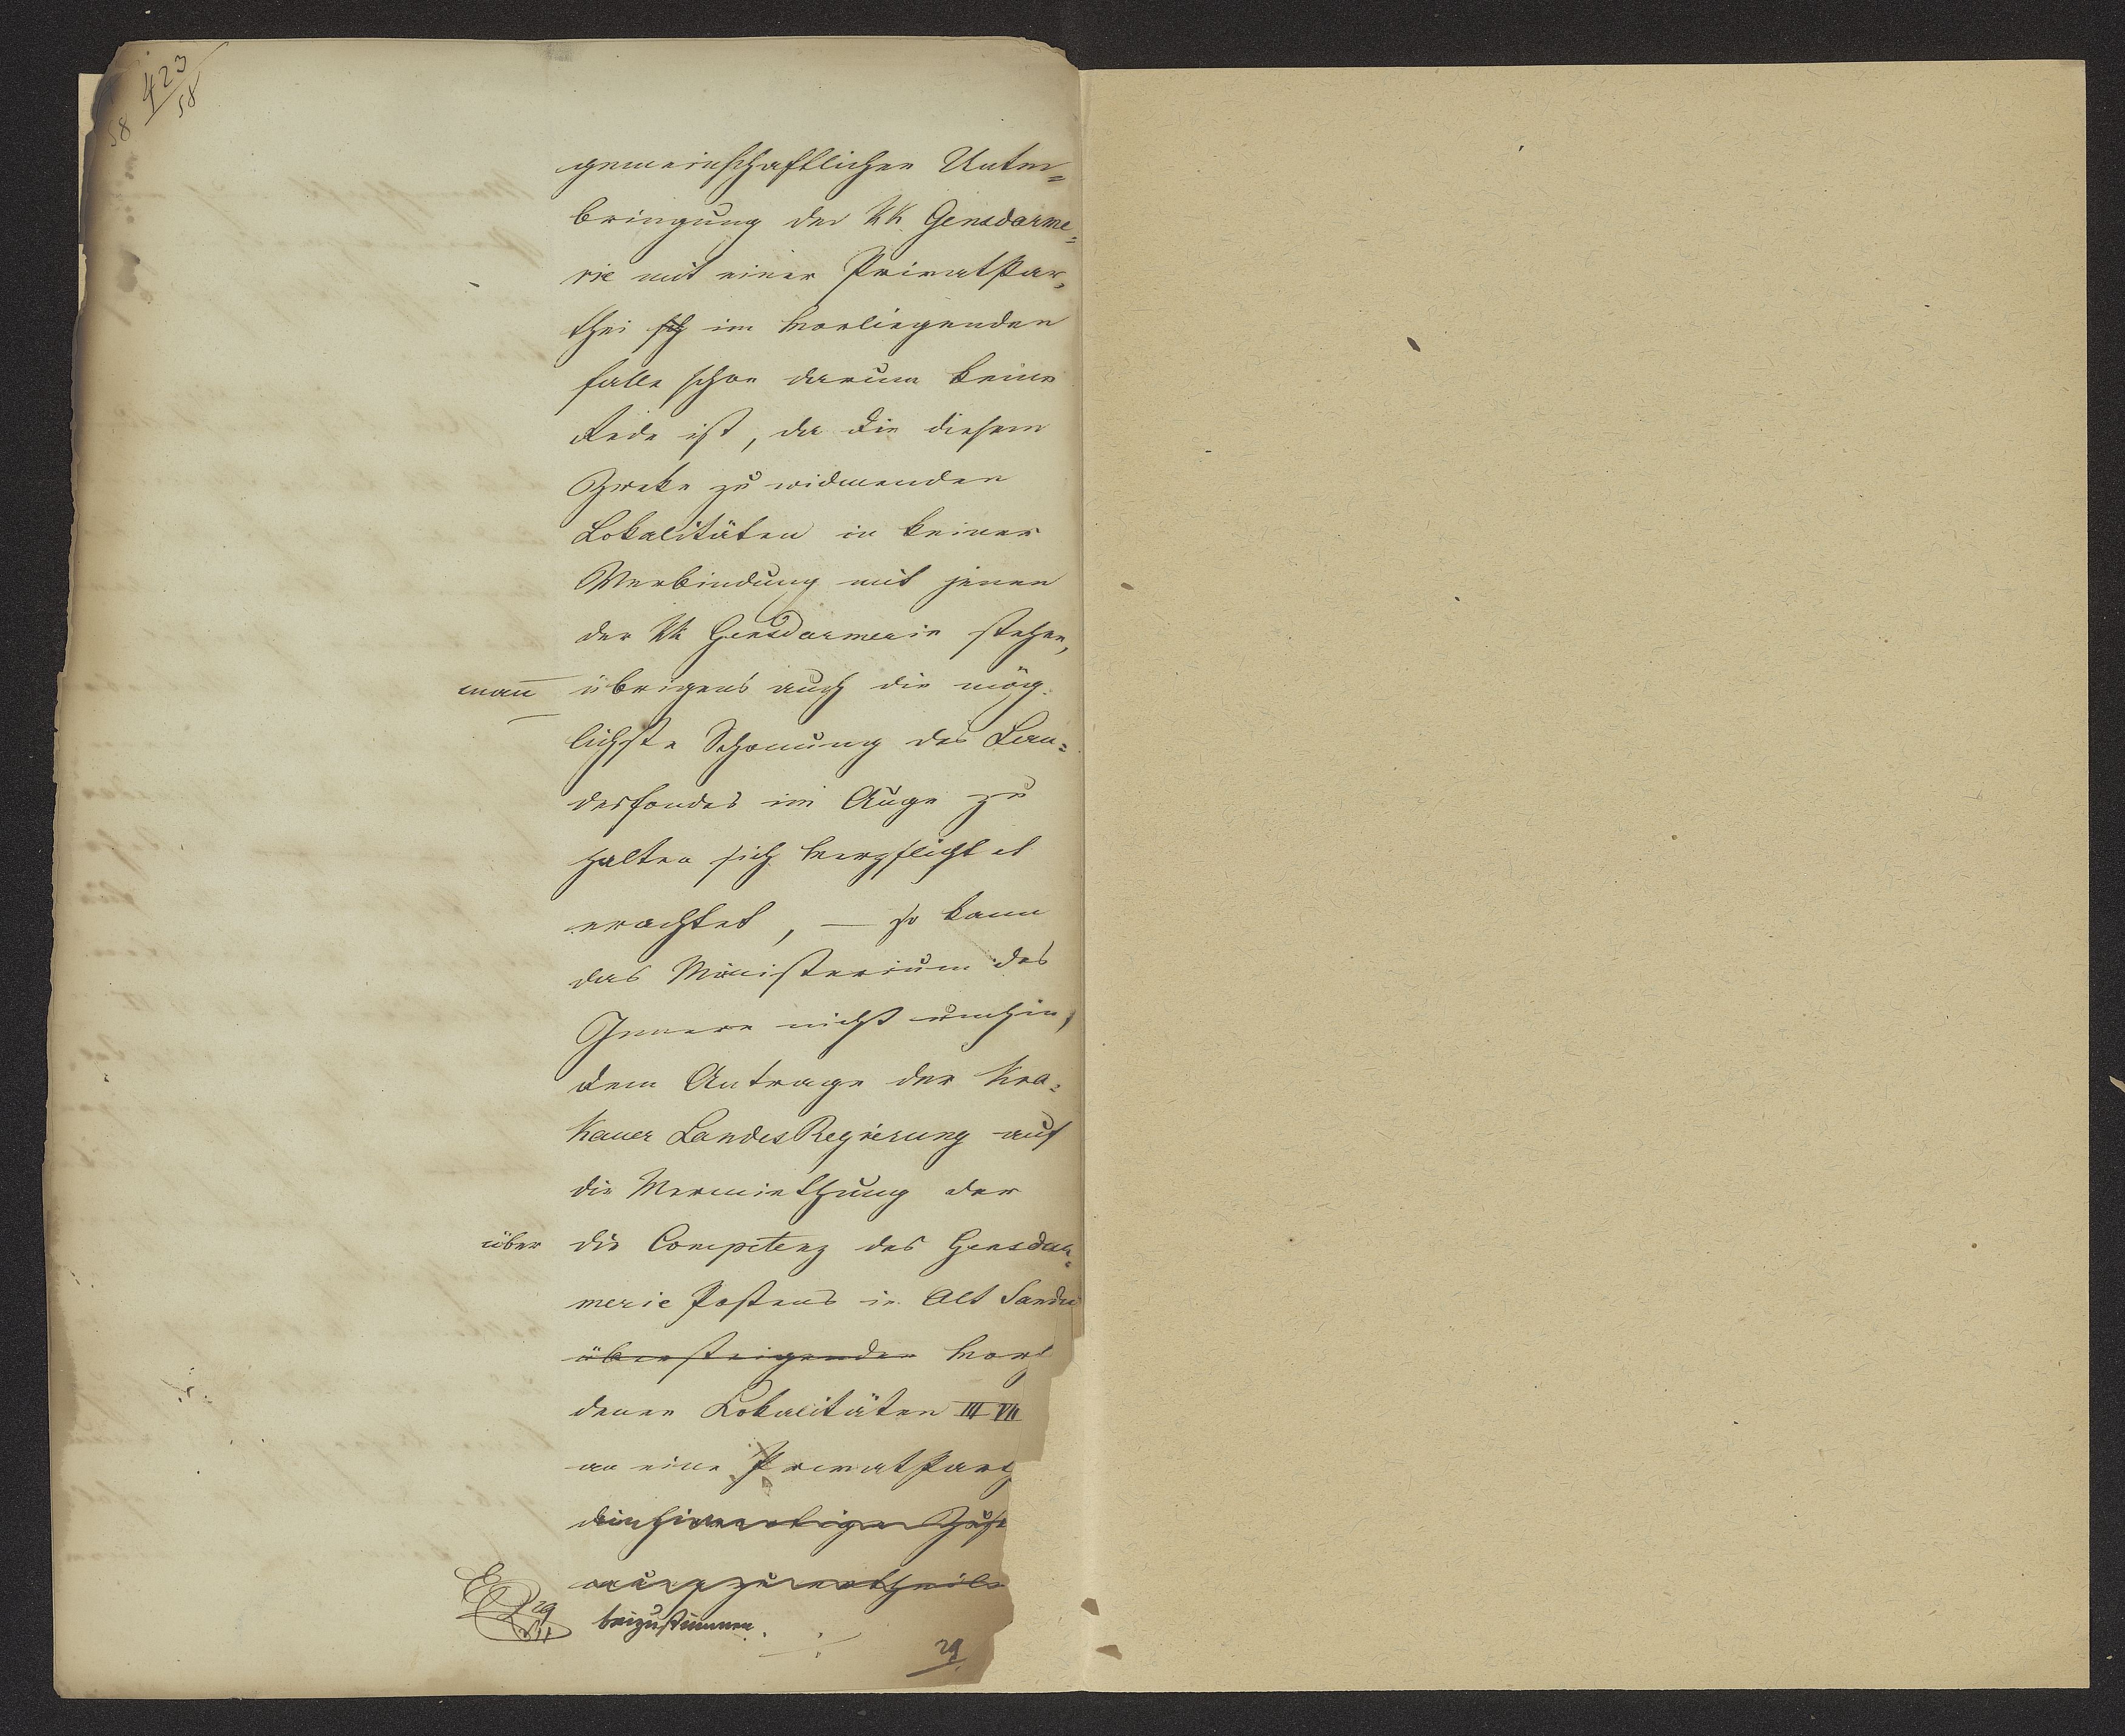 423
58
58
gemeinschaftlichen Unter=
bringung der kk Gensdarme=
rie mit einer Privatpar=
thei sch im vorliegenden
falle schon darum keine
Rede ist, da die diesem
Zweke zu widmenden
Lokalitäten in keiner
Verbindung mit jenen
der kk Gensdarmerie stehen,
man übrigens auch die mög=
lichste Schonung des Lan=
desfondes im Auge zu
halten sich verpflichtet
erachtet, – so kann
das Ministerium des
Innern nicht umhin,
dem Antrage der Kra=
kauer LandesRegierung auf
die Vermiethung der
über die Competenz des Gensdar=
merie Postens in Alt Sandec
übersteigenden vorh
denen Lokalitäten III VII
an eine Privatpart
die hierortige Zust
mung zu ertheilen
29
beizustimmen.
29